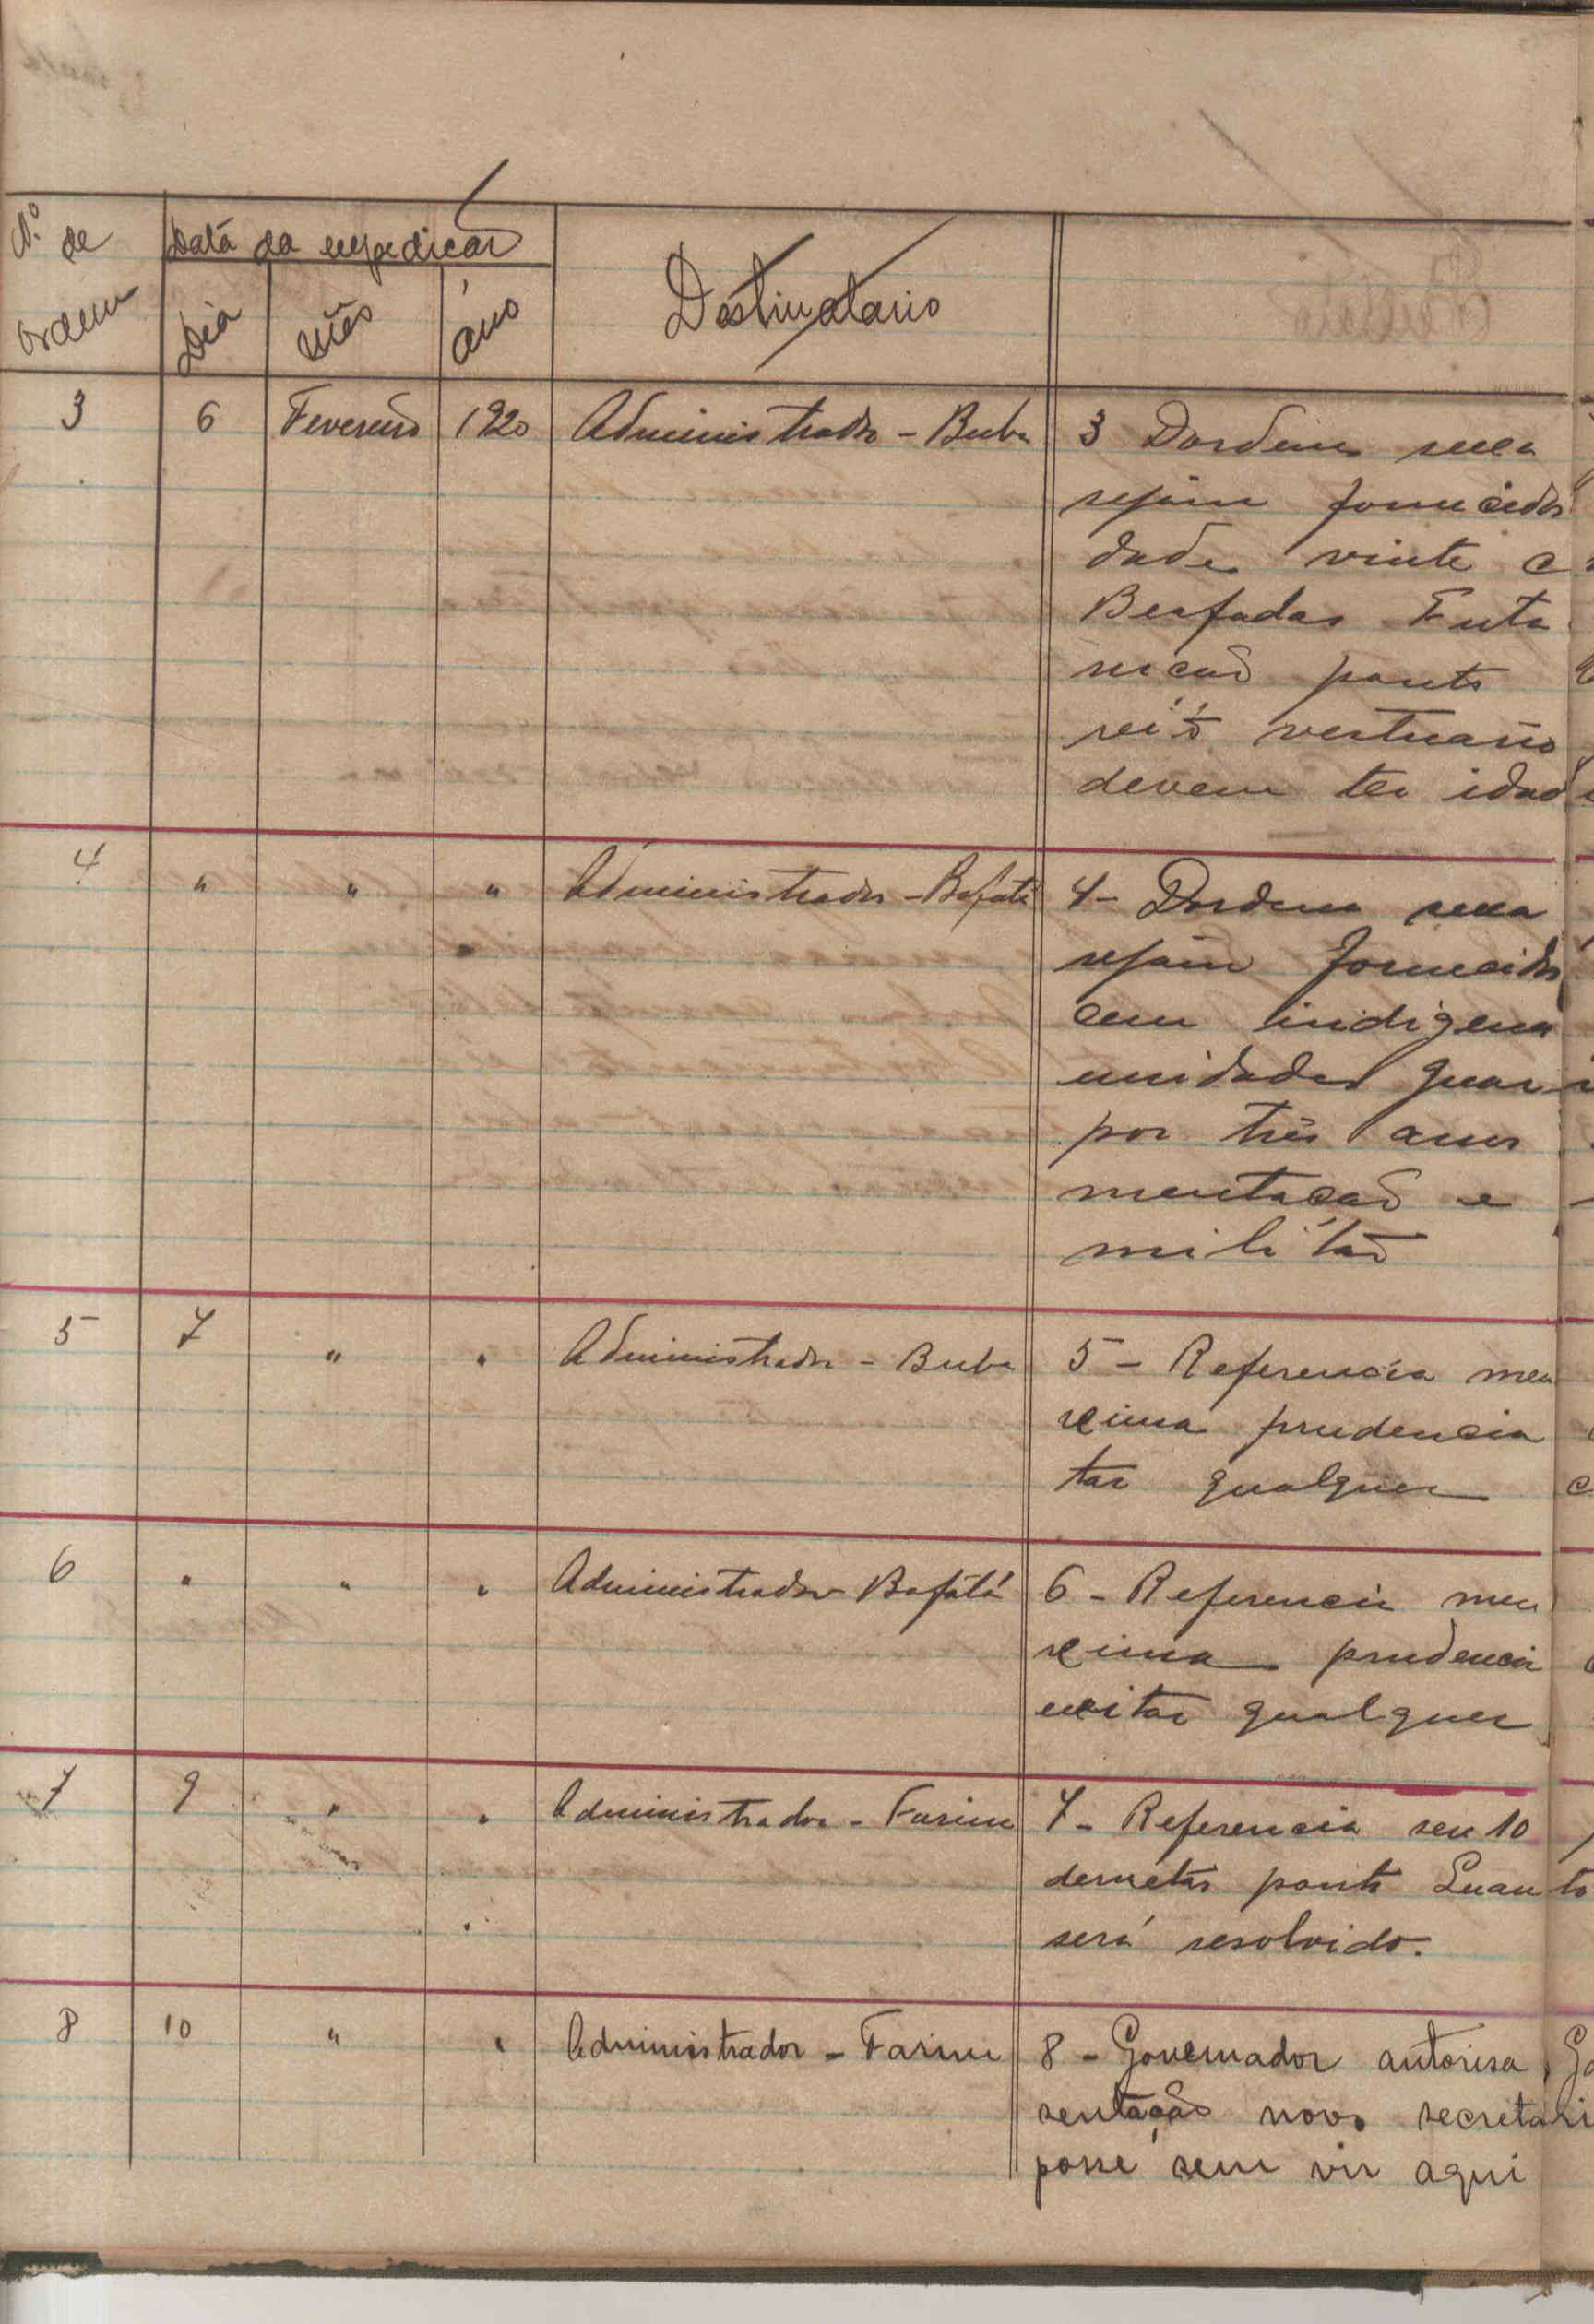 N.º de ordem
Data da expedicão
Dia
mês
áno
Destinatario
3 6 Fevereiro 1920 Administrador - Buba 3 Dordem sexa
sejam fornecidos
dades vinte
Beafadas Futa
nicão ponto
vestuario
devem ter idade
4 " " " Administrador - Bafatá 4 - Dordem sexa
sejam fornecidos
cem indigena
unidades guar
por três anos
mentacão e
militar
5 7 " " Administrador - Buba 5 - Referencia meu
xima prudencia
tar qualquer
6 " " " Administrador Bafatá 6 - Referencia meu
xima prudencia
evitar qualquer
7 9 " " Administrador - Farim 7 - Referencia seu 10
ponto Quanto
será resolvido.
8 10 " " Administrador - Farim 8 - Governador autorisa
sentação novo secretari
posse sem vir aqui